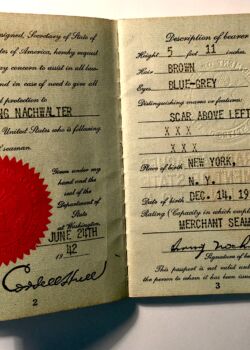 signed, Secretary of State of
tes of America, hereby request
y concern to assist in all law-
nd in case of need to give all
d protection to
NG NACHWALTER
United States who is following
f seaman.
Given under my
hand and the
seal of the
Department of
State
at Washington,
JUNE 24TH
19 42
Cordell Hull
2
Description of bearer
Height 5 feet 11 inches
Hair BROWN
Eyes BLUE-GREY
Distinguishing marks or features:
SCAR ABOVE LEFT
X X X
X X X
Place of birth NEW YORK,
N. Y.
Date of birth DEC. 14, 19
Rating (Capacity in which employ
MERCHANT SEAM
Irving Nach
Signature of be
This passport is not valid unle
the person to whom it has been issue
3